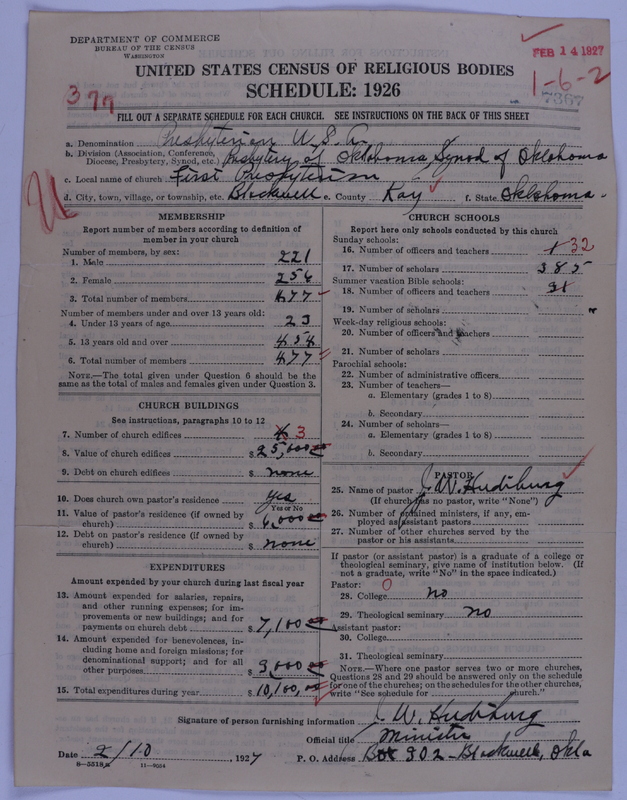 DEPARTMENT OF COMMERCE
BUREAU OF THE CENSUS
WASHINGTON
FEB 14 1927
UNITED STATES CENSUS OF RELIGIOUS BODIES
1-6-2
SCHEDULE: 1926
7367
377
FILL OUT A SEPARATE SCHEDULE FOR EACH CHURCH. SEE INSTRUCTIONS ON THE BACK OF THIS SHEET
a. Denomination Presbyterian U. S. A.
b. Division (Association, Conference, Diocese, Presbytery, Synod, etc.) Presbytery of Oklahoma, Synod of Oklahoma
c. Local name of church First Presbyterian
d. City, town, village, or township, etc. Blackwell e. County Kay f. State Oklahoma.
MEMBERSHIP
Report number of members according to definition of
member in your church
Number of members, by sex:
1. Male 221
2. Female 256
3. Total number of members 477
Number of members under and over 13 years old:
4. Under 13 years of age 23
5. 13 years old and over 454
6. Total number of members 477
NOTE.—The total given under Question 6 should be the
same as the total of males and females given under Question 3.
CHURCH BUILDINGS
See instructions, paragraphs 10 to 12
7. Number of church edifices 3
8. Value of church edifices $ 25,000
9. Debt on church edifices $ none
10. Does church own pastor's residence yes
Yes or No
11. Value of pastor's residence (if owned by
church) $ 6,000
12. Debt on pastor's residence (if owned by
church) $ none
EXPENDITURES
Amount expended by your church during last fiscal year
13. Amount expended for salaries, repairs,
and other running expenses; for im-
provements or new buildings; and for
payments on church debt $ 7,100
14. Amount expended for benevolences, in-
cluding home and foreign missions; for
denominational support; and for all
other purposes $ 3,000
15. Total expenditures during year $ 10,100,00
CHURCH SCHOOLS
Report here only schools conducted by this church
Sunday schools:
16. Number of officers and teachers 32
17. Number of scholars 385
Summer vacation Bible schools:
18. Number of officers and teachers
19. Number of scholars
Week-day religious schools:
20. Number of officers and teachers
21. Number of scholars
Parochial schools:
22. Number of administrative officers
23. Number of teachers—
a. Elementary (grades 1 to 8)
b. Secondary
24. Number of scholars—
a. Elementary (grades 1 to 8)
b. Secondary
PASTOR
25. Name of pastor J. W. Hudiburg
(If church has no pastor, write "None")
26. Number of ordained ministers, if any, em-
ployed as assistant pastors
27. Number of other churches served by the
pastor or his assistants
If pastor (or assistant pastor) is a graduate of a college or
theological seminary, give name of institution below. (If
not a graduate, write "No" in the space indicated.)
Pastor: 0
28. College no
29. Theological seminary no
Assistant pastor:
30. College
31. Theological seminary
NOTE.—Where one pastor serves two or more churches,
Questions 28 and 29 should be answered only on the schedule
for one of the churches; on the schedules for the other churches,
write "See schedule for church."
Signature of person furnishing information J. W. Hudiburg
Official title Minister
Date 2/10, 1927 P. O. Address Box 302 - Blackwell, Okla
8—5518 11—9054